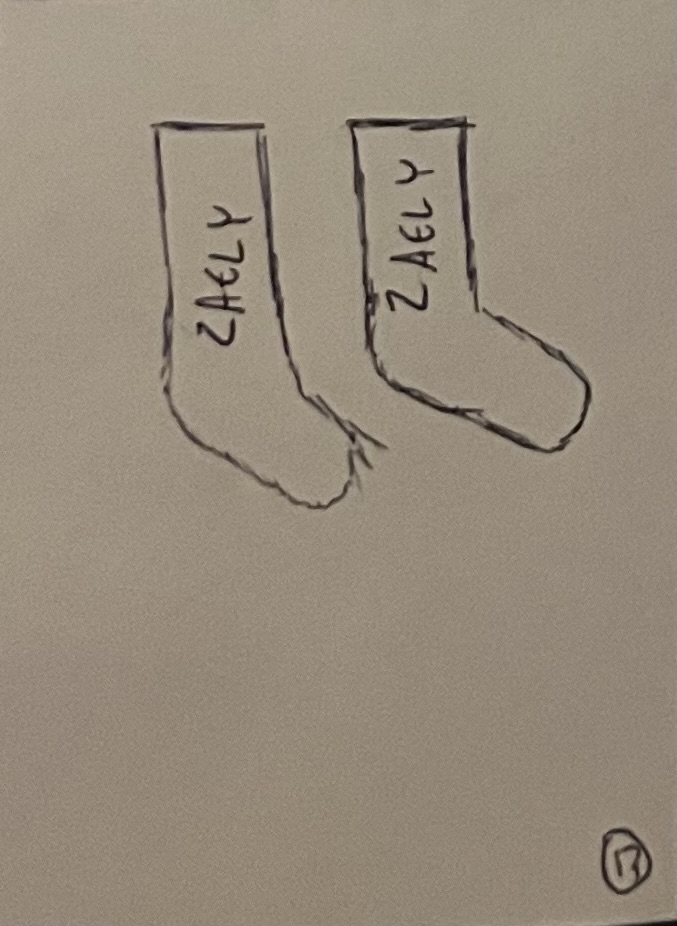 ZAELY
ZAELY